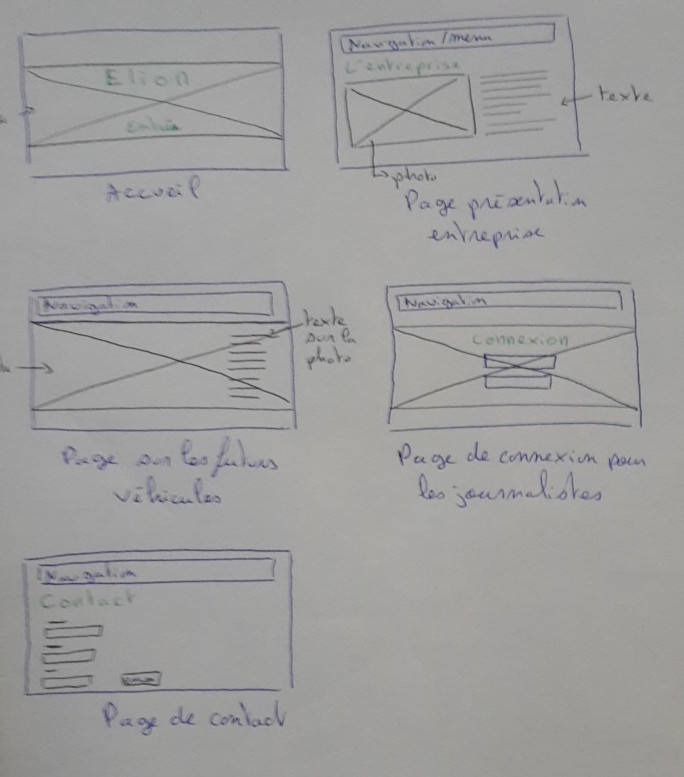 Elion
entrée
Accueil
Navigation/menu
L'entreprise
texte
photo
Page présentation
entreprise
Navigation
texte
sur la
photo
Page sur les futurs
véhicules
Navigation
Connexion
Page de connexion pour
les journalistes
Navigation
Contact
Page de contact